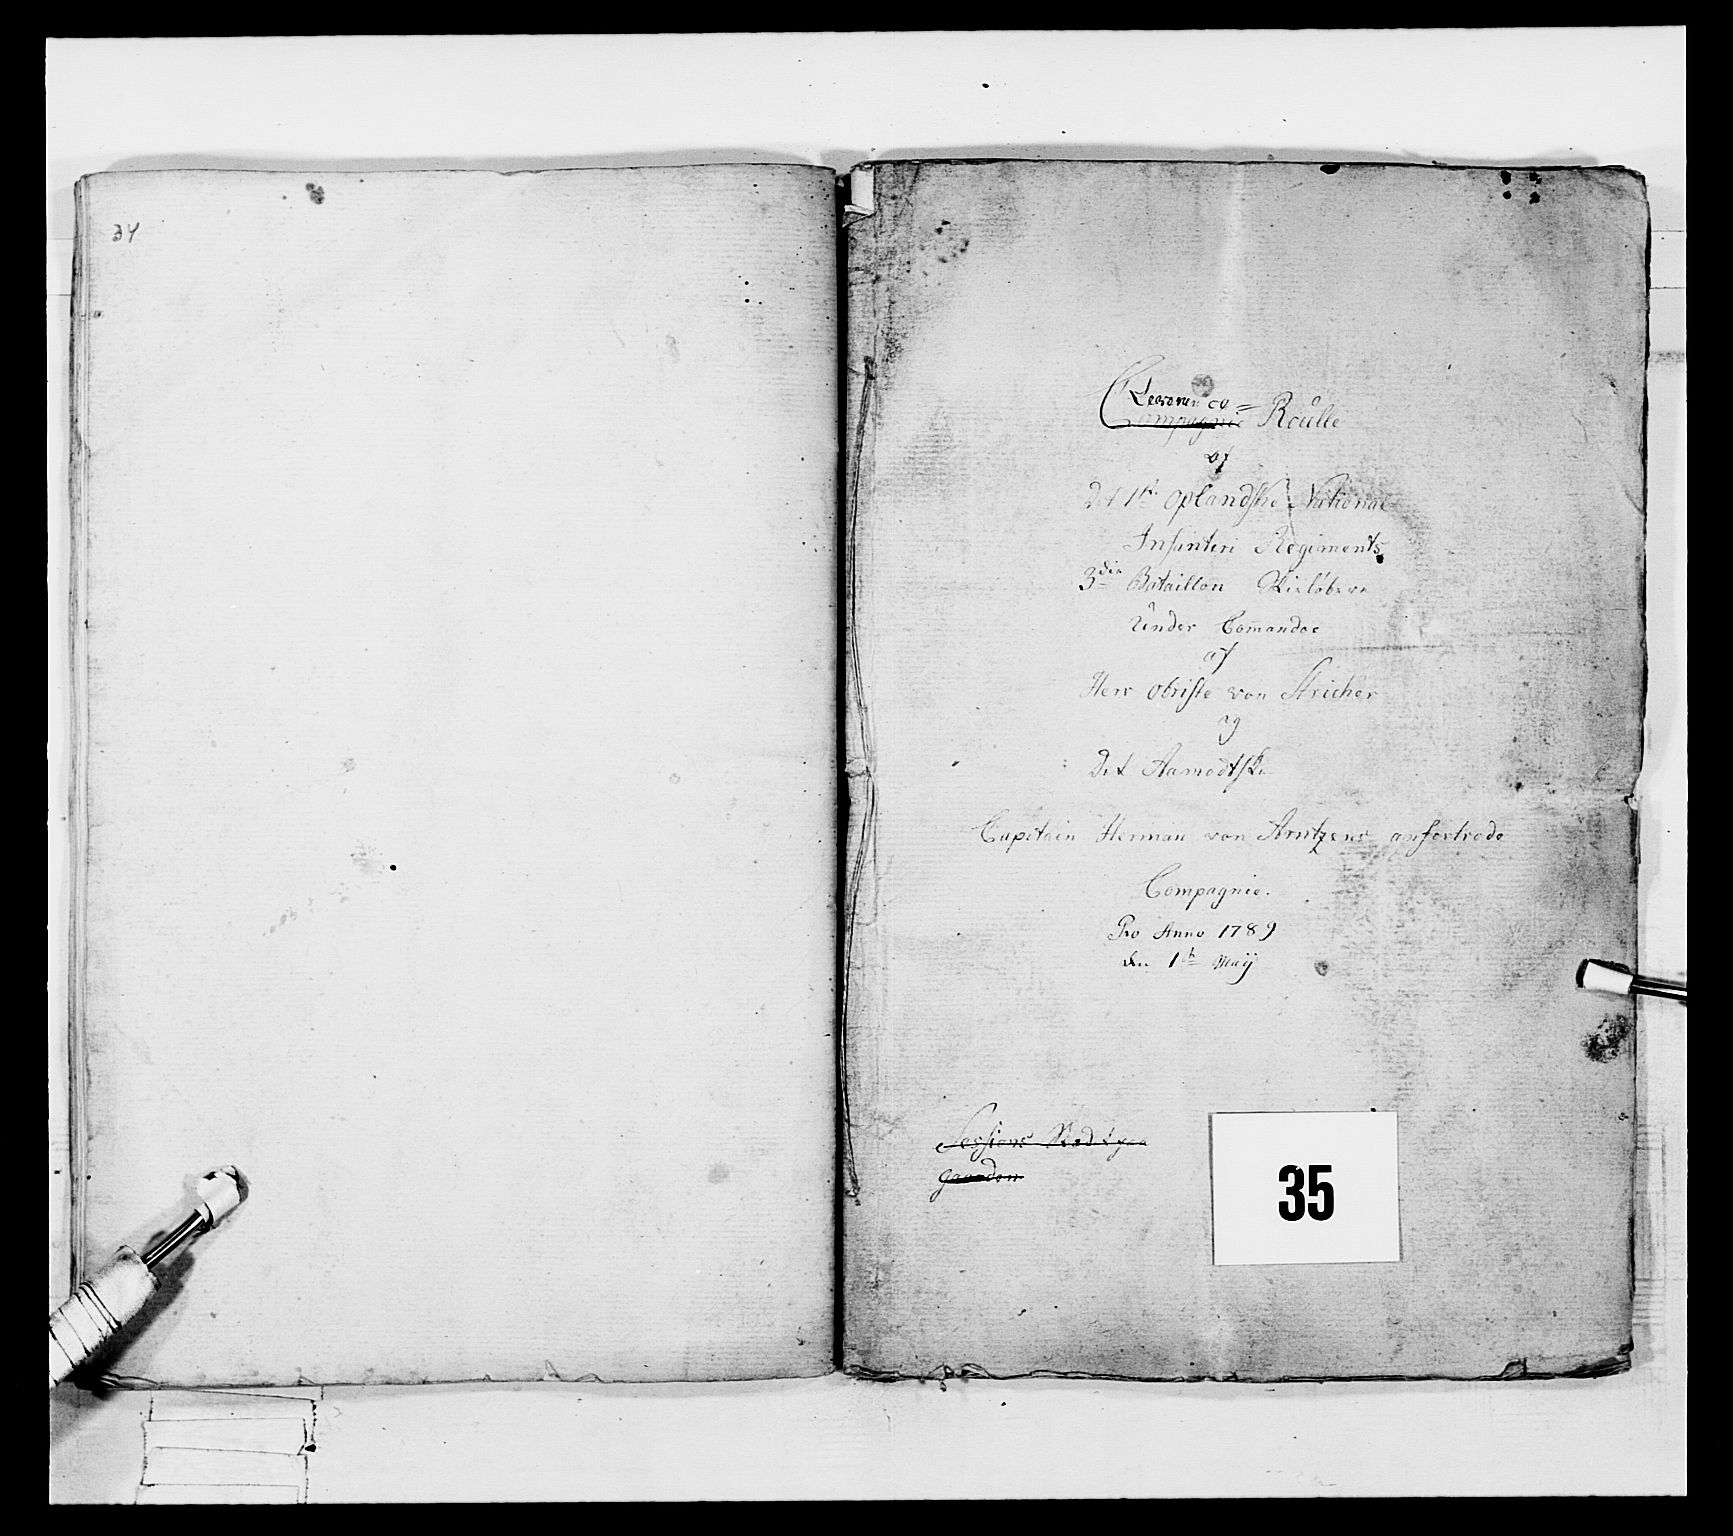 34
Compagnie Roulle
af
Det 1te Oplandske National
Infanteri Regiments
3die Bataillon Skieløbere
Under Comandoe
af
Herr Obriste von Stricker
og
Det Aamodtske
Capitain Herman von Arntzens anfortrode
Compagnie.
Pro Anno 1789
den 1te Maÿ
Sessions
35